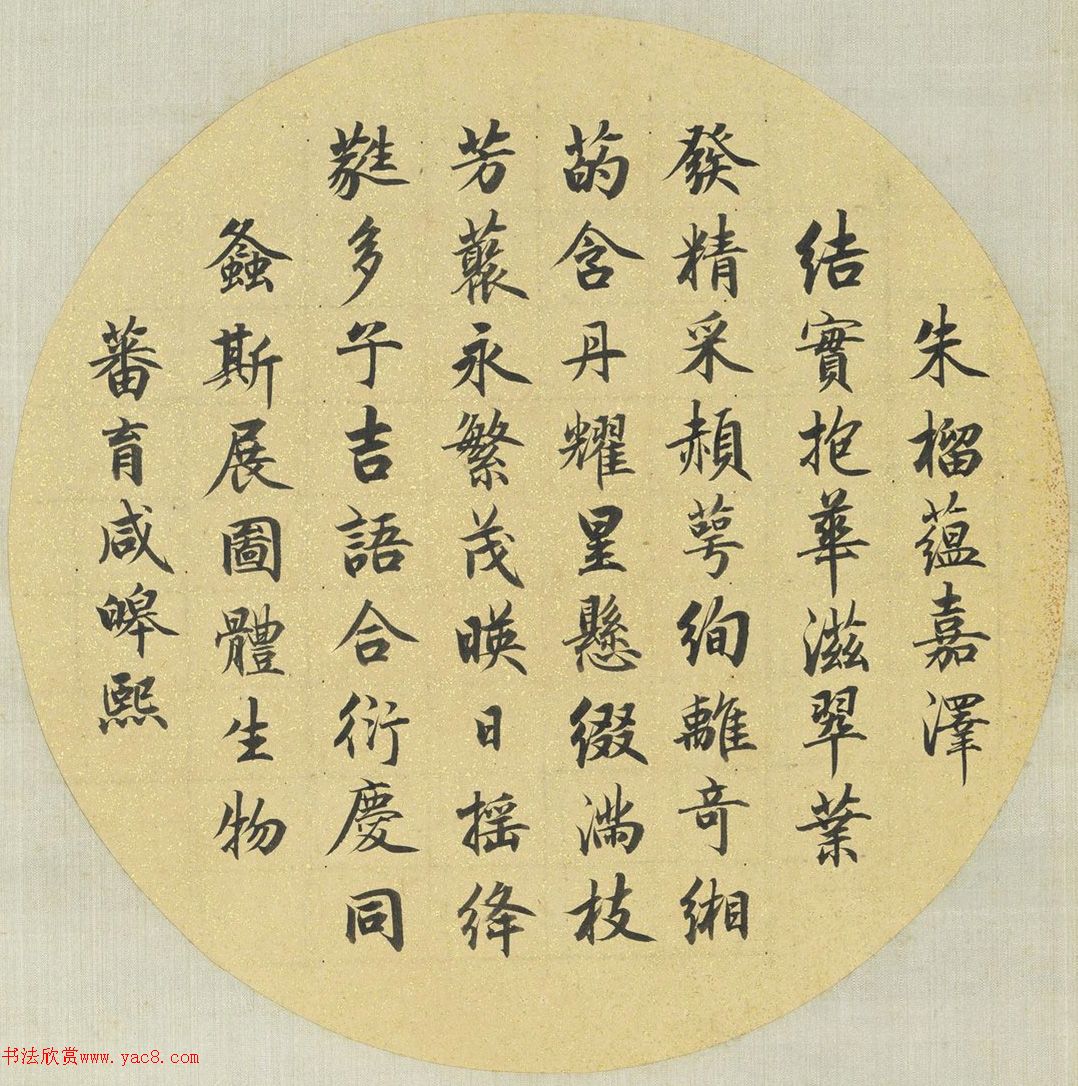 朱榴蕴嘉澤
結實抱華滋翠葉
發精采赬萼絢離奇緗
菂含丹耀星懸綴滿枝
芳蘂永繁茂暎日摇絳
蕤多子吉語合衍慶同
螽斯展圖體生物
蕃育咸皞熙
书法欣赏www.yac8.com